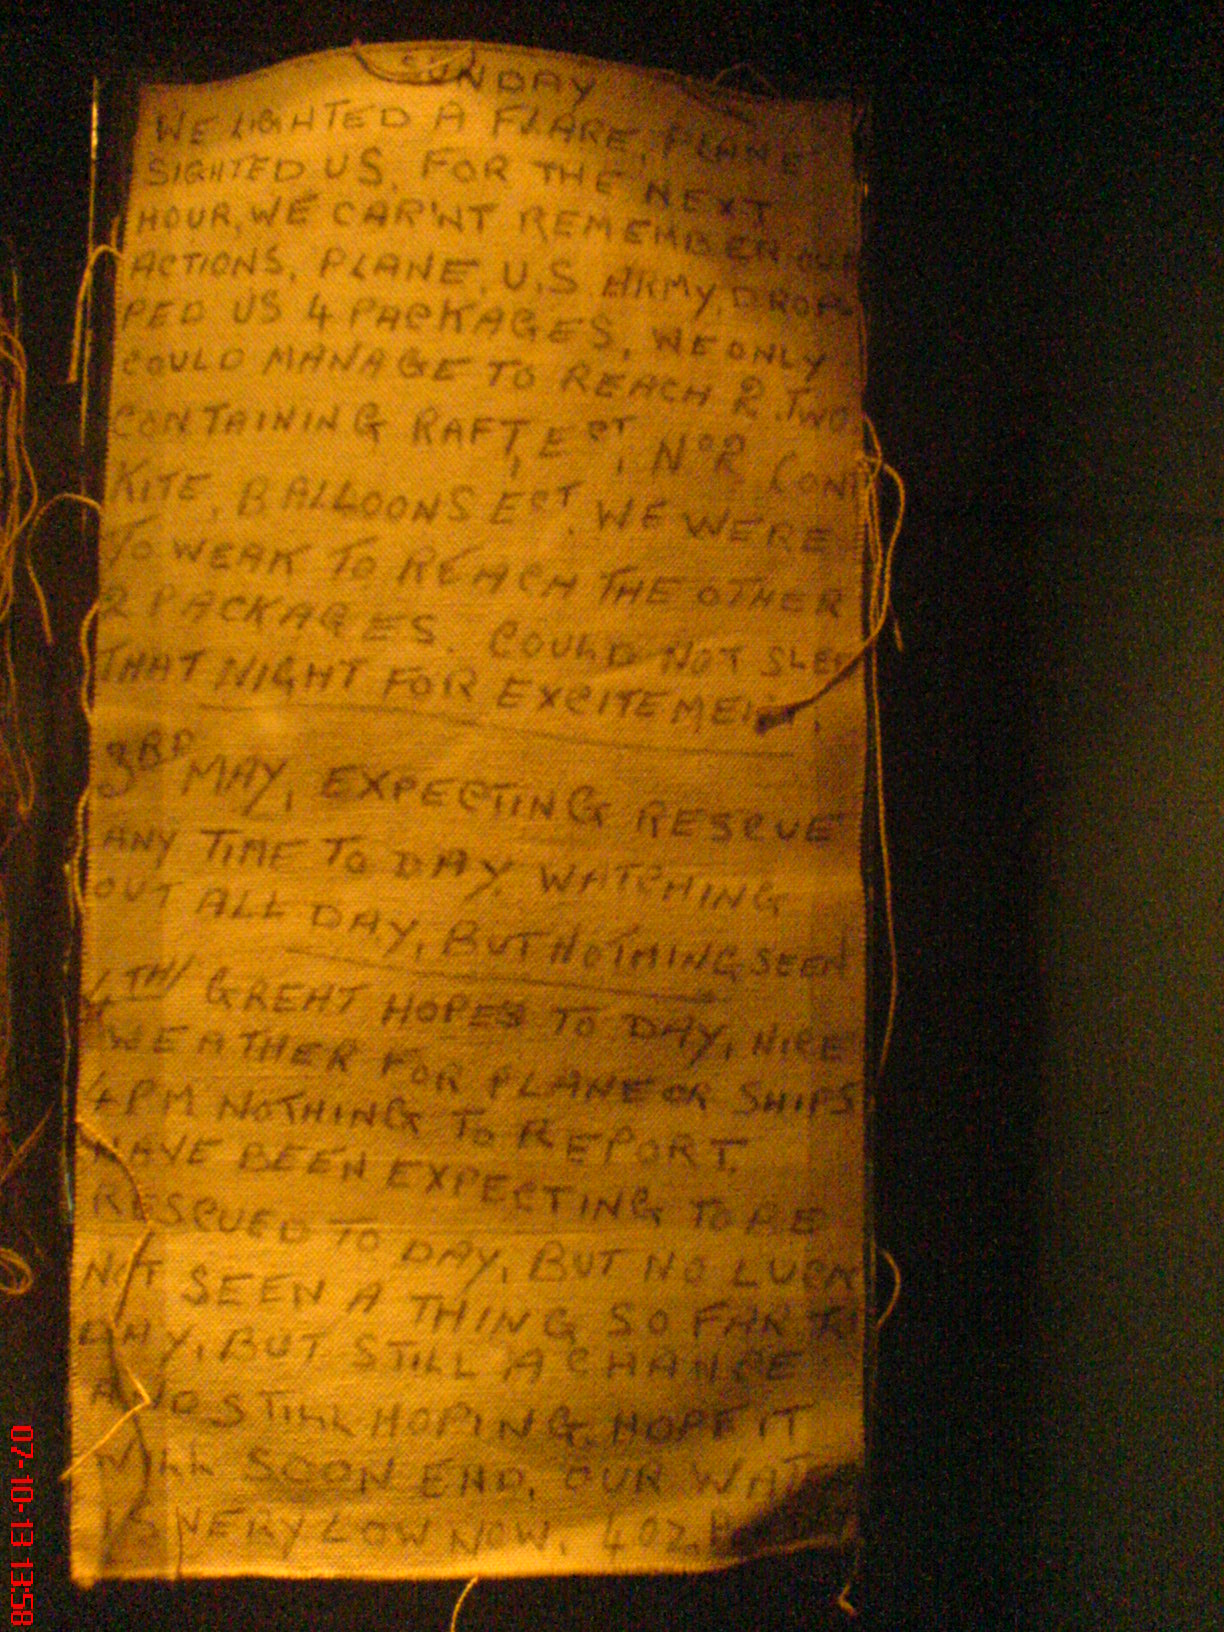 SUNDAY
WE LIGHTED A FLARE, PLANE
SIGHTED US. FOR THE NEXT
HOUR, WE CAR'NT REMEMBER OUR
ACTIONS. PLANE, U.S ARMY, DROP-
PED US 4 PACKAGES, WE ONLY
COULD MANAGE TO REACH 2. TWO.
CONTAINING RAFT, ECT, No 2 CONT
KITE, BALLOONS ECT. WE WERE
TO WEAK TO REACH THE OTHER
2 PACKAGES. COULD NOT SLEE
THAT NIGHT FOR EXCITEMENT.
3RD MAY, EXPECTING RESCUE
ANY TIME TO DAY. WATCHING
OUT ALL DAY, BUT NOTHING SEEN
4TH/ GREAT HOPES TO DAY, NICE
WEATHER FOR PLANE OR SHIPS
4 PM NOTHING TO REPORT.
HAVE BEEN EXPECTING TO BE
RESCUED TO DAY, BUT NO LUCK
NOT SEEN A THING SO FAR TO
DAY, BUT STILL A CHANCE
AND STILL HOPING, HOPE IT
WILL SOON END, OUR WATER
IS VERY LOW NOW, 4 OZ.
07-10-13 13:58